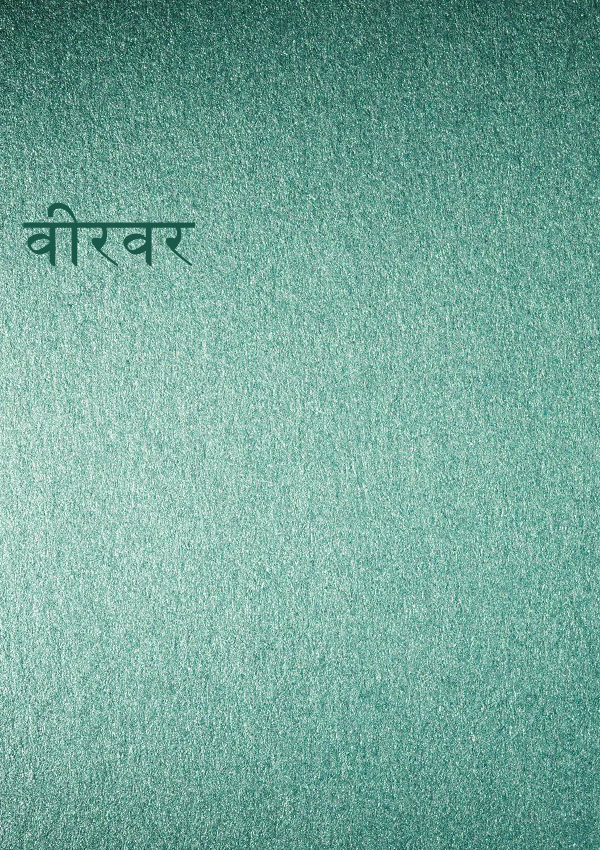 वीरवर